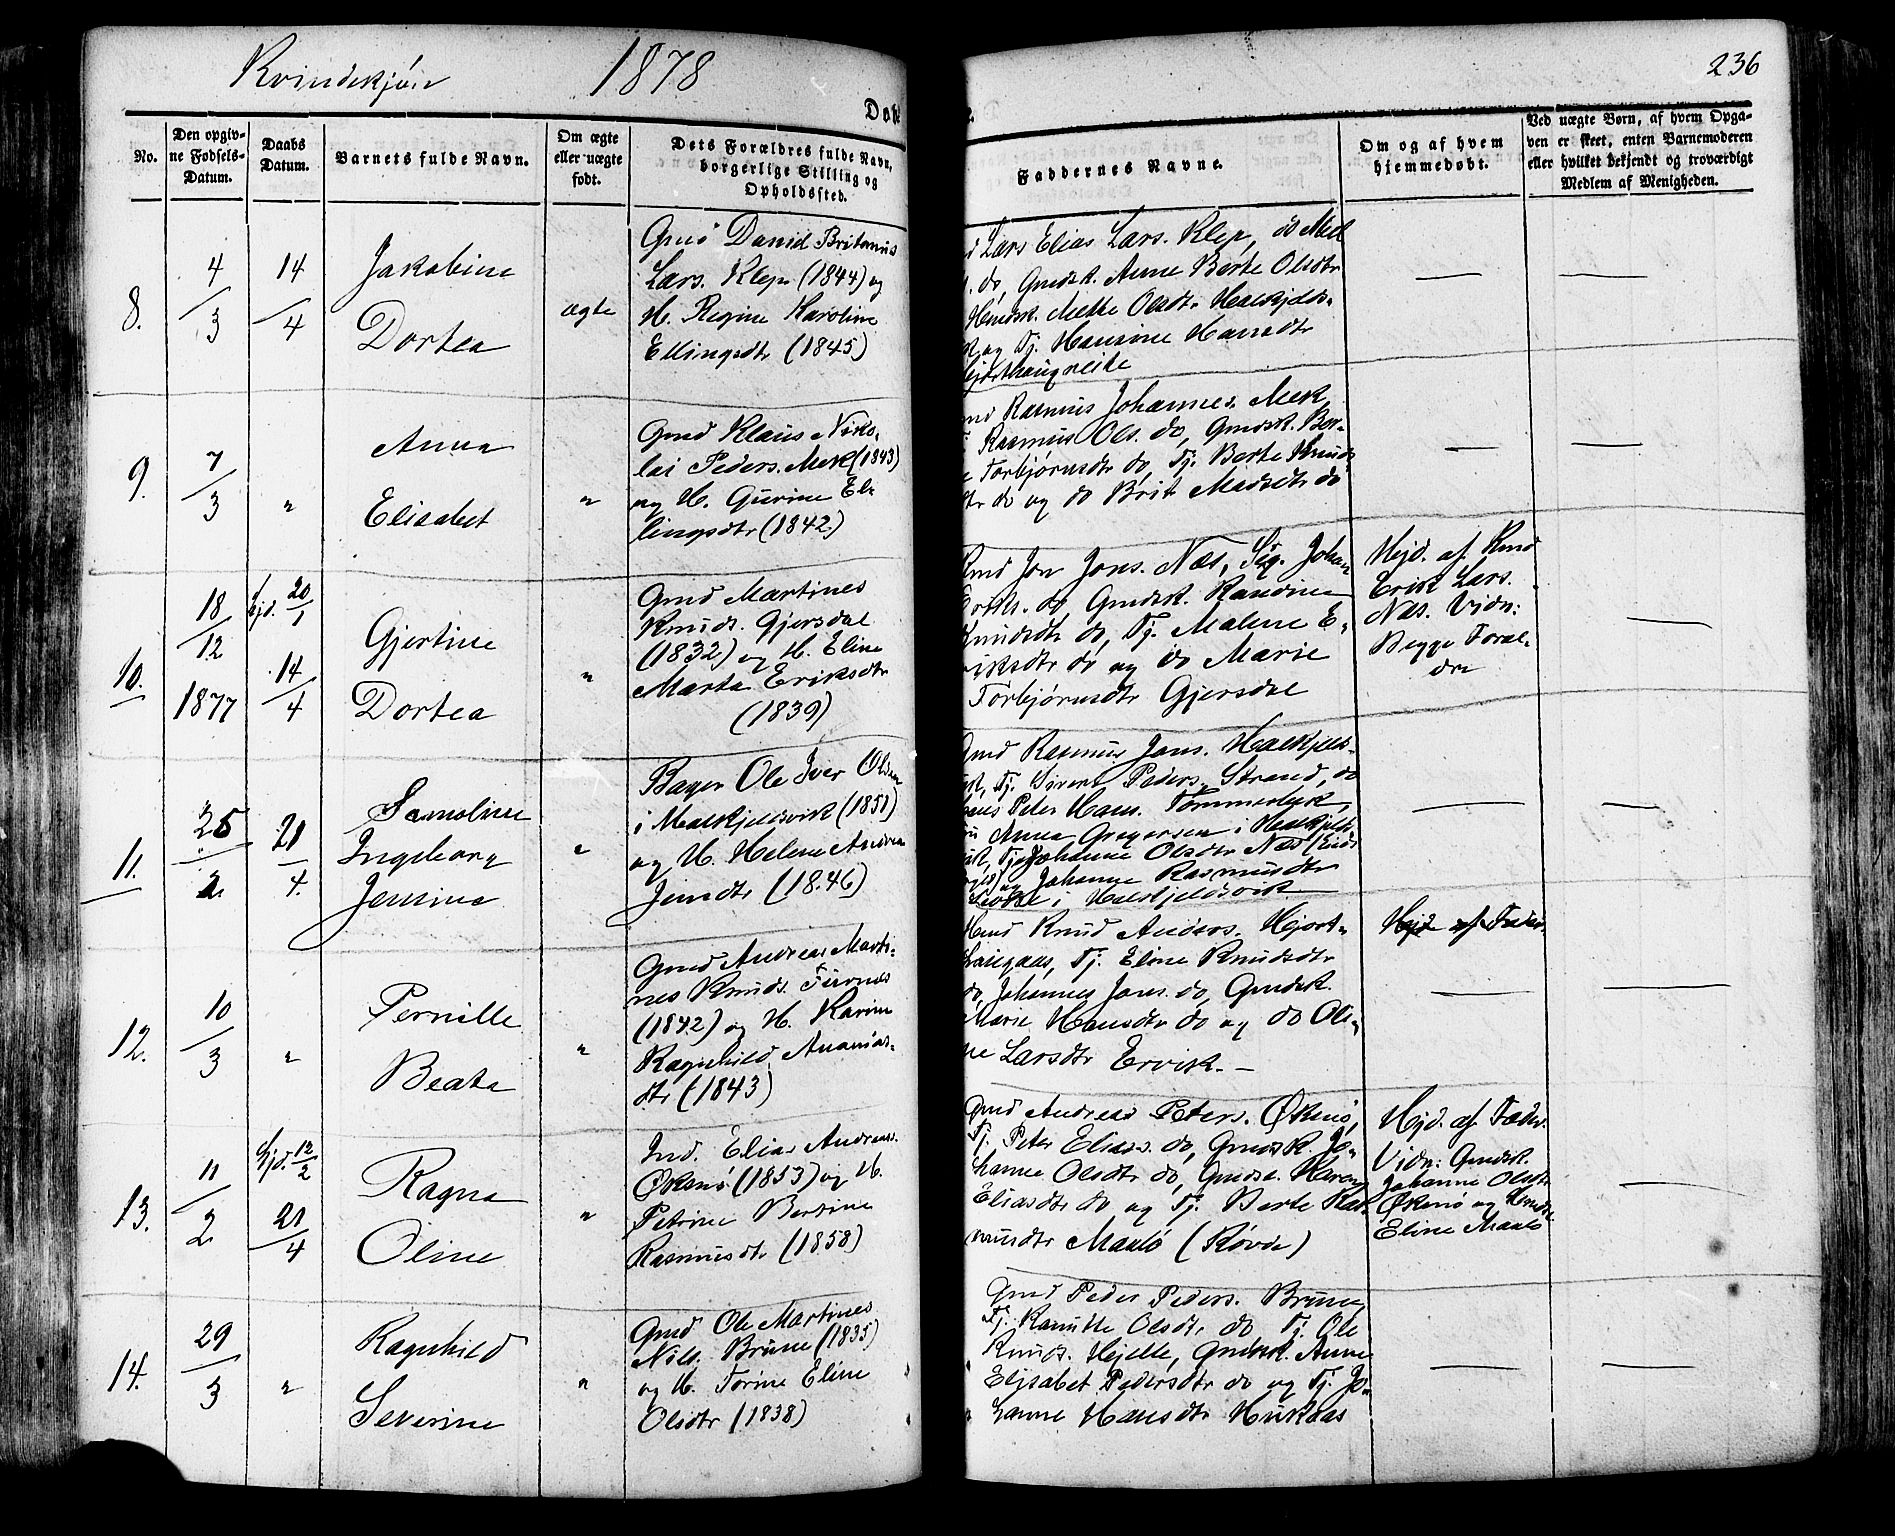 Kvindekjön 1878
236
No.
Den opgiv-
ne Fødsels-
Datum.
Daabs
Datum.
Barnets fulde Navn.
Om ægte
eller uægte
født.
Dets Forældres fulde Navn,
borgerlige Stilling og
Opholdssted.
Faddernes Navne.
Om og af hvem
hjemmedøbt.
Ved uægte Børn, af hvem Opga-
ven er skeet, enten Barnemoderen
eller hvilket bekjendt og troværdigt
Medlem af Menigheden.
8.
4/3
14/4
Jakobine
Dortea
ægte
Gmd David Britanus
Lars. Klep (1844) og
H. Regine Karoline
Ellingsdtr (1845)
Lars Elias Lars. Klep, do
do, Gmdsk. Anne Berte Olsdtr
Mette Olsdtr
og Tj. Hansine Hansdtr
9.
7/3
"
Anna
Elisabet
"
Gmd Klaus Niko-
lai Peders. Mek (1843)
og H. Gurine El-
lingsdtr (1842)
Rasmus Johannes. Mek
Rasmus Ols. do, Gmdsk. Ber-
Torbjørnsdtr do, Tj. Berte Knuds-
dtr do og do Brit Madsdtr do
10.
18/12
1877
Hjd. 20/1
14/4
Gjertine
Dortea
"
Gmd Martines
Knuds. Gjersdal
(1832) og H. Eline
Marta Eriksdtr
(1839)
Jon Jons. Næs, Johan
do, Gmdsk. Rasmine
Knudsdtr do, Tj. Malene E-
riksdtr do og do Marie
Torbjørnsdtr Gjersdal
Hjd. af Kmd
Erik Lars.
Næs. Vidn:
Begge Foræl-
dre
11.
25/2
21/4.
Samoline
Ingeborg
Jensine
"
Bager Ole Iver Olsen
(1851)
og H. Helene Andrea
Jensdtr (1846)
Gmd Rasmus Jons.
Tj. Sivert Peders. Strand, do
Peter Hans.
Anna Gregersen i
Johanne Olsdtr Næs
og Johanne Rasmusdtr
12.
10/3
"
Pernille
Beata
"
Gmd Andreas Marti-
nes Knuds. Furnes
(1842) og H. Karine
Ragnhild Ananias-
dtr (1843)
Knud Anders. Hjort-
Tj. Eline Knudsdtr
do, Johannes Jons. do, Gmdsk.
Marie Hansdtr do og do Oli-
ne Larsdtr Ervik. —
Hjd af Fader.
13.
11/2
Hjd. 12/2
21/4
Ragna
Oline
"
Ind. Elias Andreas.
Øksnø (1853) og H.
Petrine Bertine
Rasmusdtr (1858)
Gmd Andreas Peters. Øksnø,
Tj. Peter Elias. do, Gmdsk. Jo-
hanne Olsdtr do, Gmdsk.
Eliasdtr do og Tj. Berte Ras-
musdtr Maalø (Røvde)
Hjd. af Fader.
Vidn: Gmdsk.
Johanne Olsdtr
Øksnø og
Eline Maalø
14.
29/3
"
Ragnhild
Severine
"
Gmd Ole Martines
Nils. Brune (1835)
og H. Torine Eline
Olsdtr (1838)
Gmd Peder Peders. Brune,
Tj. Olsdtr do Tj. Ole
Knuds. Hjelle, Gmdsk. Anne
Elisabet Pedersdtr do og Tj. Jo-
hanne Hansdtr